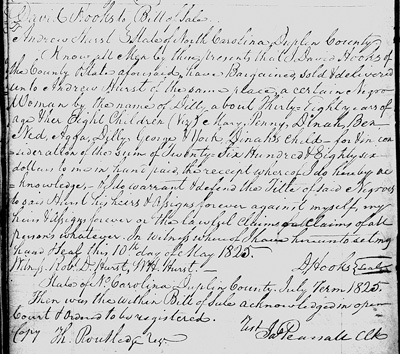 David Hooks to Bill of Sale
To Andrew Hurst State of North Carolina, Duplin County
Know all Men by these presents that I David Hooks of
the County & State aforesaid, have Bargained, sold & delivered
unto Andrew Hurst of the same place, a certain Negro
Woman by the name of Dill, about Thirty Eight years of
age & her Eight Children (Viz) Mary, Penny, Dinah, Ben
Ned, Dilly, George & York Dinah's child for & in con
sideration of the sum of Twenty Six Hundred & Eighty six
dollars to me in hand paid, the receipt whereof I do hereby ac
knowledge, & do warrant & defend the Title of said Negroes
to said Hurst his heirs & assigns forever against myself, my
heirs & assigns forever or the lawful claims or Claims of all
persons whatever. In witness whereof I have hereunto set my
hand & seal this 10th day of May 1825.
Witns. Rob. D. Hurst, Wm. Hurst. D Hooks Seal
State of No. Carolina, Duplin County, July Term 1825.
Then was the within Bill of Sale acknowledged in open
Court & Ordered to be registered.
Test Jas Pearsall Clk
Copy Th. Routledge